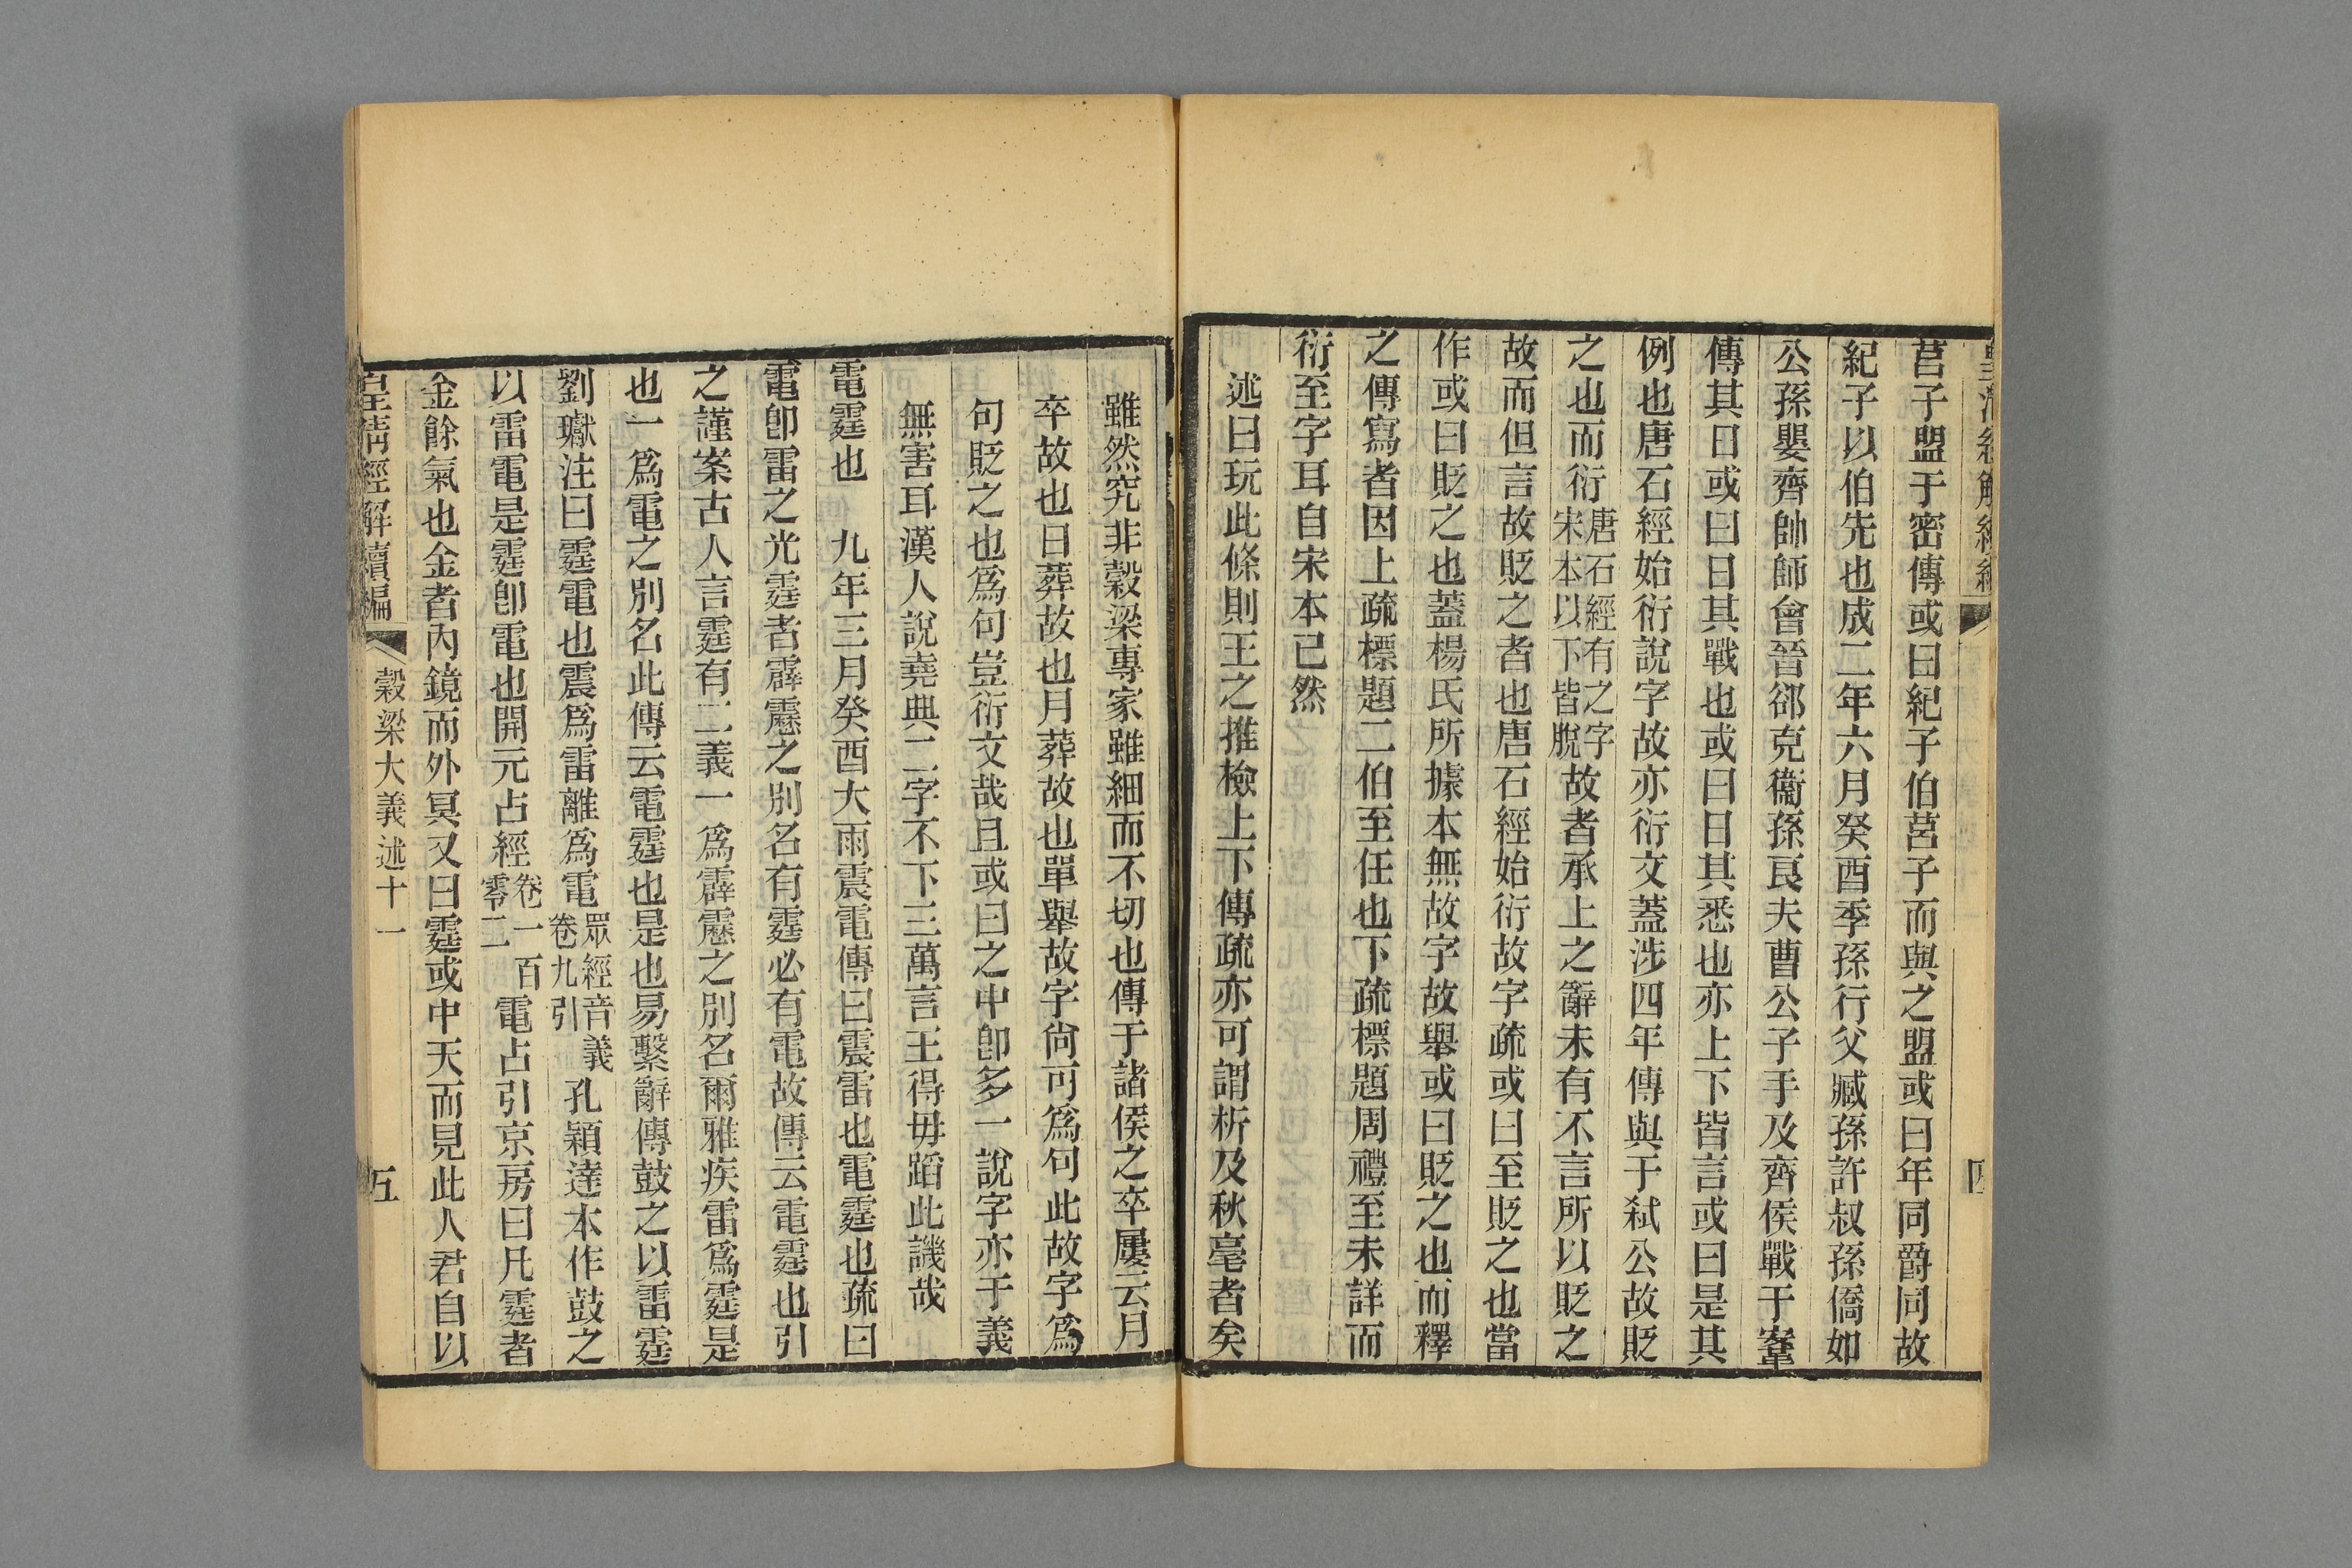 莒子盟于密傳或曰紀子伯莒子而與之盟或曰年同爵同故
紀子以伯先也成二年六月癸酉季孫行父臧孫許叔孫僑如
公孫嬰齊帥師會晉郤克衞孫良夫曹公子手及齊侯戰于鞌
傳其日或曰日其戰也或曰日其悉也亦上下皆言或曰是其
例也唐石經始衍說字故亦衍文蓋涉四年傳與于弑公故貶
之也而衍唐石經有之字宋本以下皆脫故者承上之辭未有不言所以貶之
故而但言故貶之者也唐石經始衍故字疏或曰至貶之也當
作或曰貶之也蓋楊氏所據本無故字故舉或曰貶之也而釋
之傳寫者因上疏標題二伯至任也下疏標題周禮至未詳而
衍至字耳自宋本已然
述曰玩此條則王之推檢上下傳疏亦可謂析及秋毫者矣
雖然究非穀梁專家雖細而不切也傳于諸侯之卒屢云月
卒故也日葬故也月葬故也單舉故字尙可爲句此故字爲
句貶之也爲句豈衍文哉且或曰之中卽多一說字亦于義
無害耳漢人說堯典二字不下三萬言王得毋蹈此譏哉
電霆也 九年三月癸酉大雨震電傳曰震雷也電霆也疏曰
電卽雷之光霆者霹靂之別名有霆必有電故傳云電霆也引
之謹案古人言霆有二義一爲霹靂之別名爾雅疾雷爲霆是
也一爲電之別名此傳云電霆也是也易繫辭傳鼓之以雷霆
劉瓛注曰霆電也震爲雷離爲電眾經音義卷九引孔穎達本作鼓之
以雷電是霆卽電也開元占經卷一百零二電占引京房曰凡霆者
金餘氣也金者內鏡而外冥又曰霆或中天而見此人君自以
皇清經解續編 穀梁大義述十一 五